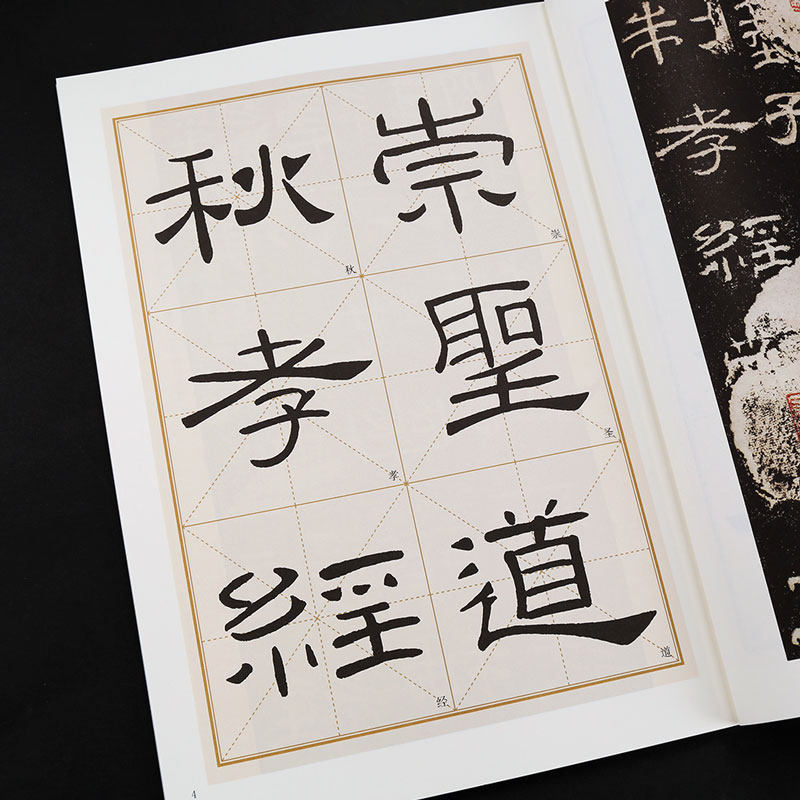 崇聖道
崇
圣
道
秋孝經
秋
孝
经
4
制孝經